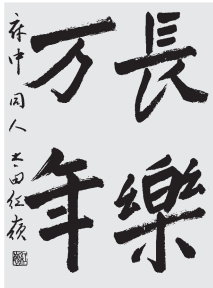 長樂
万年
府中同人 太田紅嶺